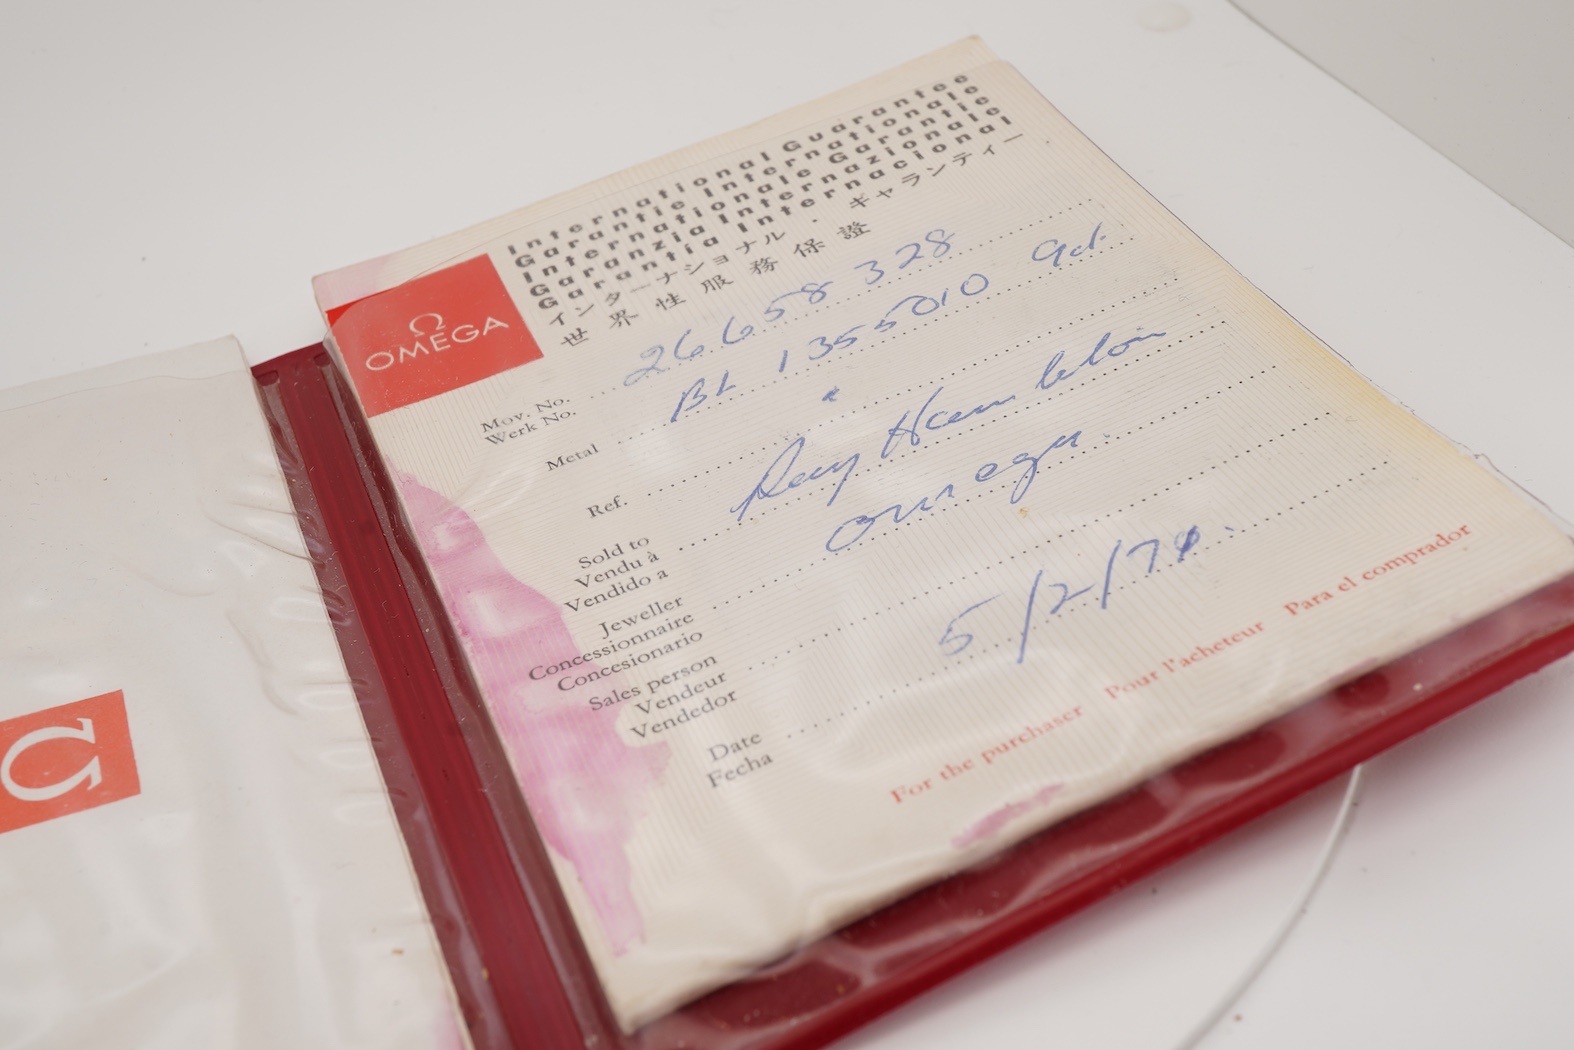 International Guarantee
Garantie Internationale
Internationale Garantie
Garanzia Internazionale
Garantia Internacional
インターナショナル・ギャランティー
世界性服務保證
Ω
OMEGA
Mov. No. 26658328
Werk No.
Metal BL 1355010
Ref.
Sold to Ray
Vendu à
Vendido a
Jeweller omega.
Concessionnaire
Concesionario
Sales person
Vendeur
Vendedor
Date 5/2/7
Fecha
For the purchaser Pour l'acheteur Para el comprador
Ω